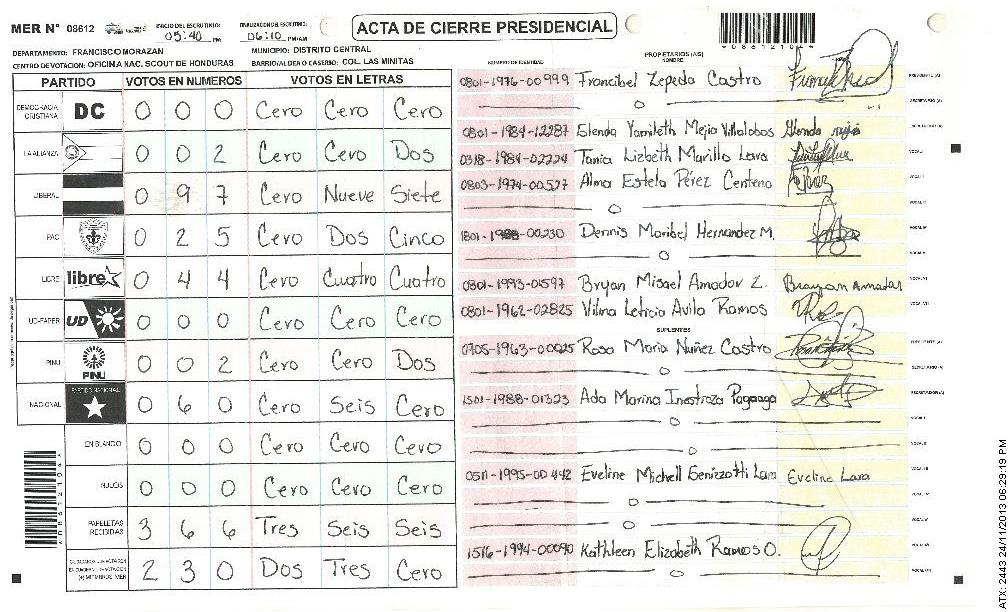 MER N° 08612
INICIO DEL ESCRUTINIO: 05:40 PM
FINALIZACION DEL ESCRUTINIO: 06:10 PM/AM
ACTA DE CIERRE PRESIDENCIAL
DEPARTAMENTO: FRANCISCO MORAZAN
MUNICIPIO: DISTRITO CENTRAL
CENTRO DE VOTACION: OFICINA NAC. SCOUT DE HONDURAS
BARRIO/ALDEA O CASERIO: COL. LAS MINITAS
PARTIDO VOTOS EN NUMEROS VOTOS EN LETRAS
DEMOCRACIA CRISTIANA DC 0 0 0 Cero Cero Cero
LA ALIANZA 0 0 2 Cero Cero Dos
LIBERAL 0 9 7 Cero Nueve Siete
PAC 0 2 5 Cero Dos Cinco
LIBRE libre 0 4 4 Cero Cuatro Cuatro
UD-FAPER UD 0 0 0 Cero Cero Cero
PINU PINU 0 0 2 Cero Cero Dos
NACIONAL PARTIDO NACIONAL 0 6 0 Cero Seis Cero
EN BLANCO 0 0 0 Cero Cero Cero
NULOS 0 0 0 Cero Cero Cero
PAPELETAS RECIBIDAS 3 6 6 Tres Seis Seis
(+) MIEMBROS MER 2 3 0 Dos Tres Cero
NUMERO DE IDENTIDAD
PROPIETARIOS (AS)
NOMBRE
0801-1976-00999 Francibel Zepeda Castro PRESIDENTE (A)
SECRETARIO (A)
0801-1984-12287 Glenda Yamileth Mejia Villalobos Glenda mejia ESCRUTADOR (A)
0318-1984-02224 Tania Lizbeth Murillo Lara VOCAL I
0803-1974-00527 Alma Estela Pérez Centeno VOCAL II
1801-1988-00230 Dennis Maribel Hernandez M. VOCAL IV
0801-1993-01597 Bryan Misael Amador Z. Brayan Amador VOCAL VI
0801-1962-02825 Vilma Leticia Avila Ramos VOCAL VII
SUPLENTES
0705-1963-00025 Rosa Maria Nuñez Castro PRESIDENTE (A)
SECRETARIO (A)
1501-1988-01323 Ada Marina Inestroza Pagoaga ESCRUTADOR (A)
0511-1995-00442 Eveline Michell Genizzotti Lara Eveline Lara
1516-1994-00090 Kathleen Elizabeth Ramos O.
ATX: 2443 24/11/2013 06:29:19 PM